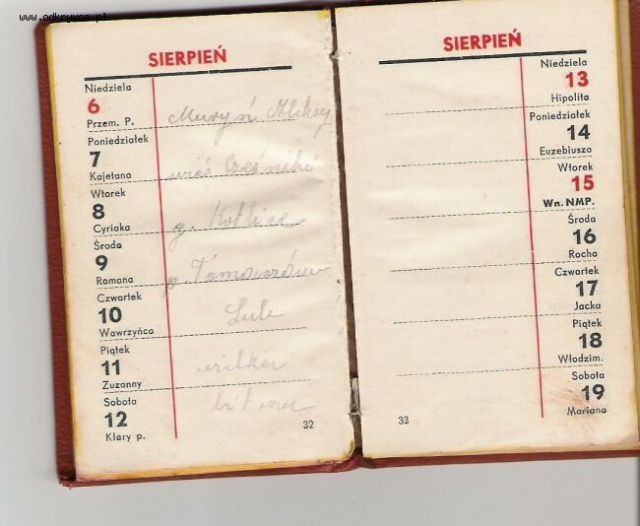 www.odkrywca.pl
SIERPIEŃ
Niedziela
6
Przem. P.
Muryń Aleksy
Poniedziałek
7
Kajetana
wieś Cześniki
Wtorek
8
Cyriaka
g. Kotlice
Środa
9
Romana
p. Tomaszów
Czwartek
10
Wawrzyńca
Lub
Piątek
11
Zuzanny
Sobota
12
Klary p.
32
SIERPIEŃ
Niedziela
13
Hipolita
Poniedziałek
14
Euzebiusza
Wtorek
15
Wn. NMP.
Środa
16
Rocha
Czwartek
17
Jacka
Piątek
18
Włodzim.
Sobota
19
Mariana
33